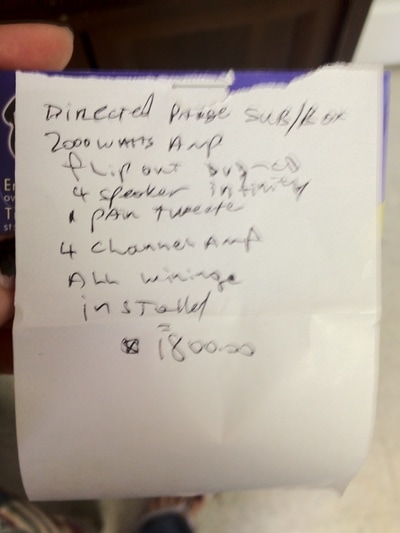 Directed Paige SUB/Box
2000 watts Amp
flip out DVD-CD
4 speaker infinity
1 pair tweete
4 channel Amp
ALL wiringe
installed
1800.00
En
ov
Th
st